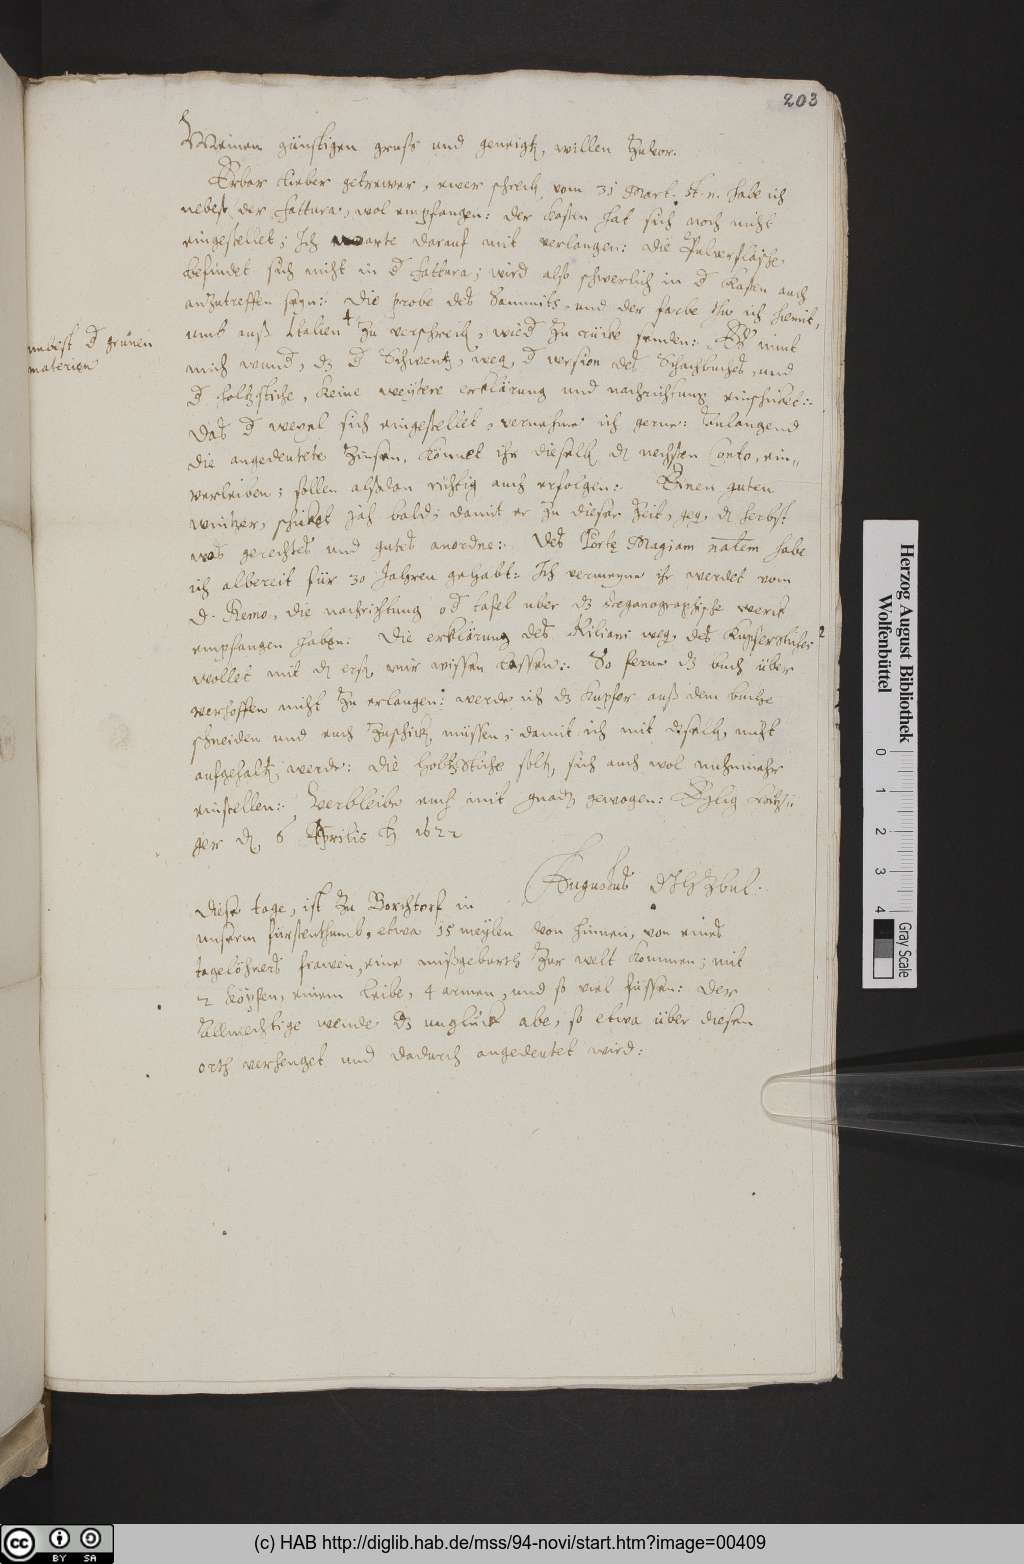 203
Meinen günstigen grus und geneigt, willen zuvor.
Erbar lieber getrewer, ewer schreib, vom 31 Mart. st. n. habe ich
nebest der fattura, wol empfangen: der kasten hat sich noch nicht
eingestellet; Ich warte darauf mit verlangen: die Pulverflasche
befindet sich nicht in d fattura; wird also schwerlich in d kasten auch
anzutreffen seyn: Die probe des Sammits, und der farbe thu ich hiemit,
umb auß Italien zu verschreib, wied zu rücke senden: Es nimt
nebest d grünen
materien
mich wund, dz d Schwentz, weg, d version des Schachbuches, und
d holtzstiche, keine weytere erklärung und nachrichtung einschicket:
Das d wexel sich eingestellet, vernehme ich gerne: Anlangend
die angedeutete Zinsen, könnet ihr dieselb dem nechsten Conto, ein-
verleiben; sollen alsdan richtig auch erfolgen: Einen guten
wintzer, schicket jah bald; damit er zu dieser Zeit, geg, d herbst
was gerechtes und gutes anordne: Des Portę Magiam natlem habe
ich albereit für 30 Jahren gehabt: Ich vermeyne ihr werdet vom
d. Remo, die nachrichtung od tafel uber dz steganographische werck
empfangen haben: Die erklärung des Kiliani weg, des Kupferstiches
wollet mit d erst, mir wissen lassen: So ferne dz buch über
verhoffen nicht zu erlangen: werde ich dz kupfer auß dem buche
schneiden und euch zuschick, müssen; damit ich mit dselb, nicht
aufgehalt, werde: Die holtzstiche solt, sich auch wol nuhmmehr
einstellen: Verbleibe euch mit gnad gewogen: Eylig
ger d, 6 Aprilis 1622
Augustus
Diese tage, ist zu Borchtorf in
unserm fürstenthumb, etwa 15 meylen von hinnen, von eines
tagelöhners frawen, eine misgeburth zur welt kommen; mit
2 köpfen, einem leibe, 4 armen, und so viel füssen: der
Allmechtige wende dz unglück abe, so etwa über diesen
orth verhenget und dadurch angedeutet wird:
Herzog August Bibliothek
Wolfenbüttel
0 1 2 3 4
Gray Scale
cc BY SA
(c) HAB http://diglib.hab.de/mss/94-novi/start.htm?image=00409